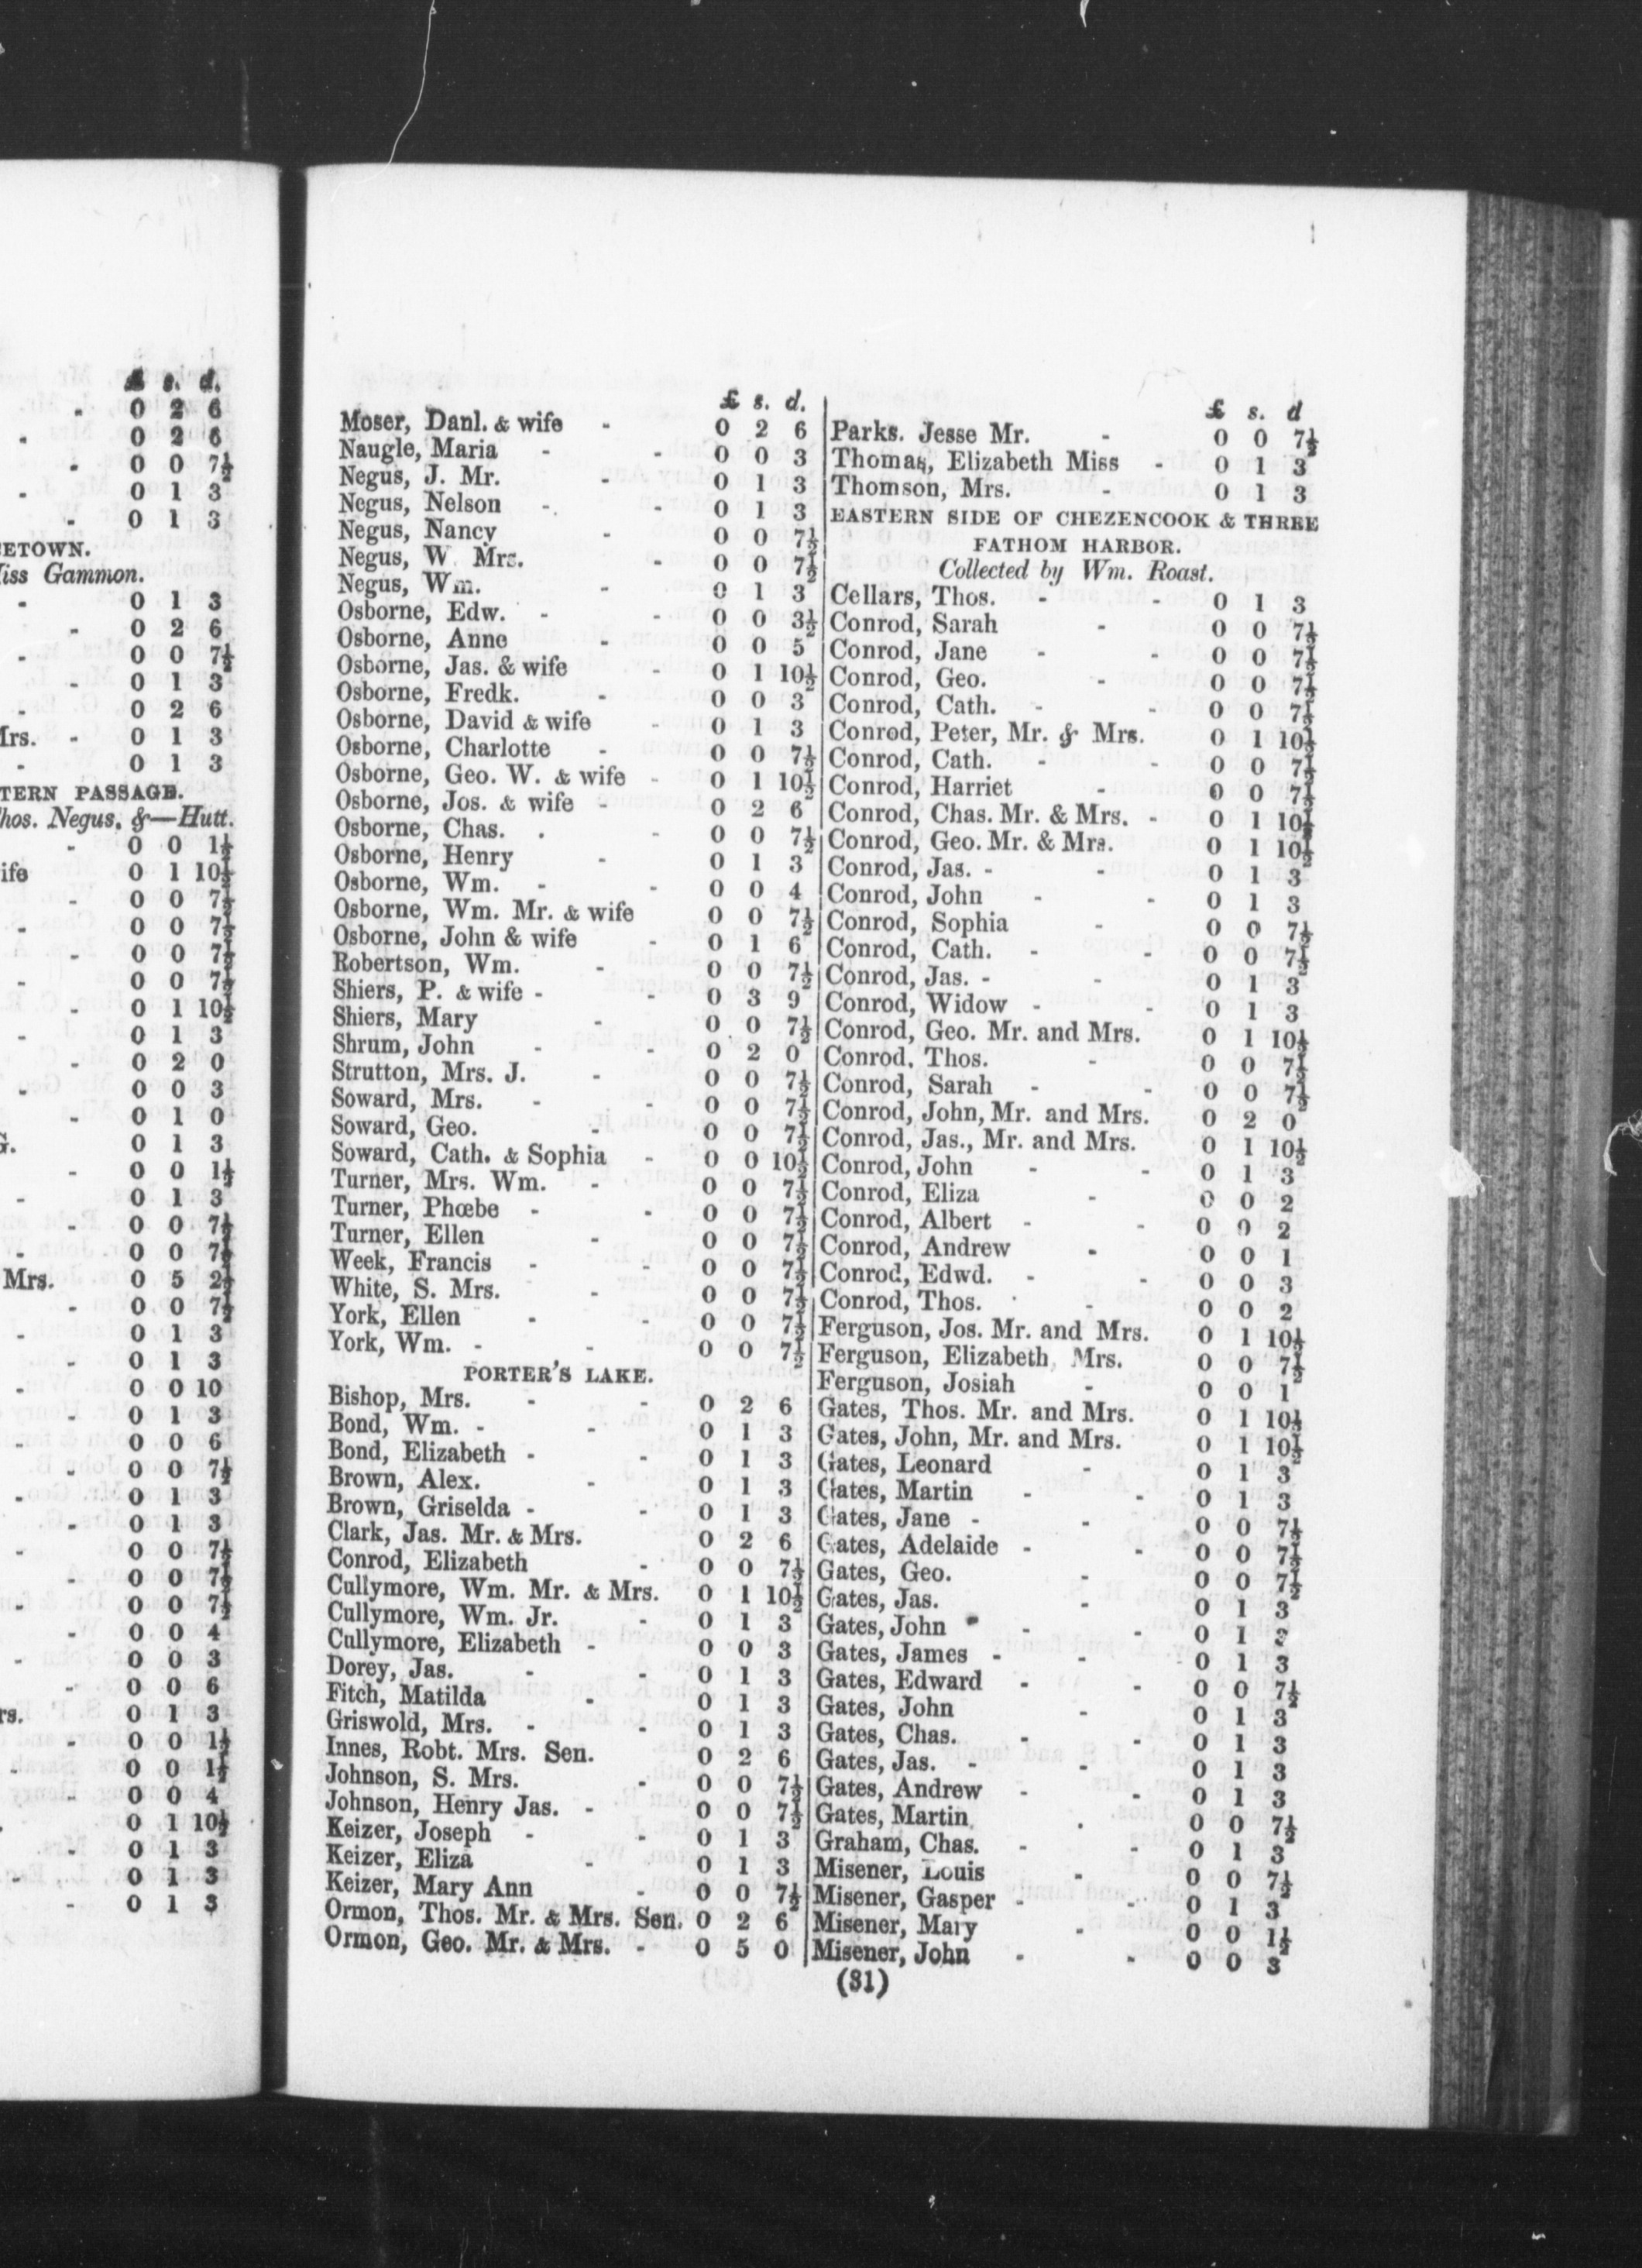 £ s. d.
- 0 2 6
- 0 2 6
- 0 0 7½
- 0 1 3
- 0 1 3
ETOWN.
iss Gammon.
- 0 1 3
- 0 2 6
- 0 0 7½
- 0 1 3
- 0 2 6
Mrs. - 0 1 3
- 0 1 3
TERN PASSAGE.
hos. Negus, &—Hutt.
- 0 0 1½
ife 0 1 10½
- 0 0 7½
- 0 0 7½
- 0 0 7½
- 0 0 7½
- 0 1 10½
- 0 1 3
- 0 2 0
- 0 0 3
- 0 1 0
G. 0 1 3
- 0 0 1½
- 0 1 3
- 0 0 7½
- 0 0 7½
Mrs. 0 5 2½
- 0 0 7½
- 0 1 3
- 0 1 3
- 0 0 10
- 0 1 3
- 0 0 6
- 0 0 7½
- 0 1 3
- 0 1 3
- 0 0 7½
- 0 0 7½
- 0 0 7½
- 0 0 4
- 0 0 3
- 0 0 6
rs. 0 1 3
- 0 0 1½
- 0 0 1½
- 0 0 4
0 1 10½
- 0 1 3
- 0 1 3
- 0 1 3
£ s. d.
Moser, Danl. & wife - 0 2 6
Naugle, Maria - - 0 0 3
Negus, J. Mr. - 0 1 3
Negus, Nelson - - 0 1 3
Negus, Nancy - 0 0 7½
Negus, W. Mrs. - 0 0 7½
Negus, Wm. - 0 1 3
Osborne, Edw. - - 0 0 3½
Osborne, Anne - 0 0 5
Osborne, Jas. & wife - 0 1 10½
Osborne, Fredk. - 0 0 3
Osborne, David & wife - 0 1 3
Osborne, Charlotte - 0 0 7½
Osborne, Geo. W. & wife - 0 1 10½
Osborne, Jos. & wife - 0 2 6
Osborne, Chas. . - 0 0 7½
Osborne, Henry - 0 1 3
Osborne, Wm. - - 0 0 4
Osborne, Wm. Mr. & wife 0 0 7½
Osborne, John & wife - 0 1 6
Robertson, Wm. - 0 0 7½
Shiers, P. & wife - - 0 3 9
Shiers, Mary - 0 0 7½
Shrum, John - - 0 2 0
Strutton, Mrs. J. - 0 0 7½
Soward, Mrs. - - 0 0 7½
Soward, Geo. - 0 0 7½
Soward, Cath. & Sophia - 0 0 10½
Turner, Mrs. Wm. - 0 0 7½
Turner, Phœbe - - 0 0 7½
Turner, Ellen - 0 0 7½
Week, Francis - - 0 0 7½
White, S. Mrs. - 0 0 7½
York, Ellen - - 0 0 7½
York, Wm. - - 0 0 7½
PORTER'S LAKE.
Bishop, Mrs. - - 0 2 6
Bond, Wm. - - 0 1 3
Bond, Elizabeth - - 0 1 3
Brown, Alex. - 0 1 3
Brown, Griselda - - 0 1 3
Clark, Jas. Mr. & Mrs. 0 2 6
Conrod, Elizabeth - 0 0 7½
Cullymore, Wm. Mr. & Mrs. 0 1 10½
Cullymore, Wm. Jr. - 0 1 3
Cullymore, Elizabeth - 0 0 3
Dorey, Jas. - - 0 1 3
Fitch, Matilda - 0 1 3
Griswold, Mrs. - - 0 1 3
Innes, Robt. Mrs. Sen. 0 2 6
Johnson, S. Mrs. - 0 0 7½
Johnson, Henry Jas. - 0 0 7½
Keizer, Joseph - - 0 1 3
Keizer, Eliza - 0 1 3
Keizer, Mary Ann - 0 0 7½
Ormon, Thos. Mr. & Mrs. Sen. 0 2 6
Ormon, Geo. Mr. & Mrs. - 0 5 0
£ s. d
Parks. Jesse Mr. - 0 0 7½
Thomas, Elizabeth Miss - 0 1 3
Thomson, Mrs. - 0 1 3
EASTERN SIDE OF CHEZENCOOK & THREE
FATHOM HARBOR.
Collected by Wm. Roast.
Cellars, Thos. - - 0 1 3
Conrod, Sarah - 0 0 7½
Conrod, Jane - - 0 0 7½
Conrod, Geo. - 0 0 7½
Conrod, Cath. - - 0 0 7½
Conrod, Peter, Mr. & Mrs. 0 1 10½
Conrod, Cath. - - 0 0 7½
Conrod, Harriet - 0 0 7½
Conrod, Chas. Mr. & Mrs. - 0 1 10½
Conrod, Geo. Mr. & Mrs. 0 1 10½
Conrod, Jas. - - 0 1 3
Conrod, John - - 0 1 3
Conrod, Sophia - 0 0 7½
Conrod, Cath. - - 0 0 7½
Conrod, Jas. - - 0 1 3
Conrod, Widow - - 0 1 3
Conrod, Geo. Mr. and Mrs. 0 1 10½
Conrod, Thos. - 0 0 7½
Conrod, Sarah - - 0 0 7½
Conrod, John, Mr. and Mrs. 0 2 0
Conrod, Jas., Mr. and Mrs. 0 1 10½
Conrod, John - - 0 1 3
Conrod, Eliza - 0 0 2
Conrod, Albert - - 0 0 2
Conrod, Andrew - 0 0 1
Conrod, Edwd. - - 0 0 3
Conrod, Thos. - 0 0 2
Ferguson, Jos. Mr. and Mrs. 0 1 10½
Ferguson, Elizabeth, Mrs. 0 0 7½
Ferguson, Josiah - 0 0 1
Gates, Thos. Mr. and Mrs. 0 1 10½
Gates, John, Mr. and Mrs. 0 1 10½
Gates, Leonard - 0 1 3
Gates, Martin - - 0 1 3
Gates, Jane - - 0 0 7½
Gates, Adelaide - - 0 0 7½
Gates, Geo. - 0 0 7½
Gates, Jas. - 0 1 3
Gates, John - - 0 1 3
Gates, James - - 0 1 3
Gates, Edward - - 0 0 7½
Gates, John - 0 1 3
Gates, Chas. - - 0 1 3
Gates, Jas. - - 0 1 3
Gates, Andrew - - 0 1 3
Gates, Martin . 0 0 7½
Graham, Chas. - - 0 1 3
Misener, Louis - 0 0 7½
Misener, Gasper - - 0 1 3
Misener, Mary - 0 0 1½
Misener, John - - 0 0 3
(31)